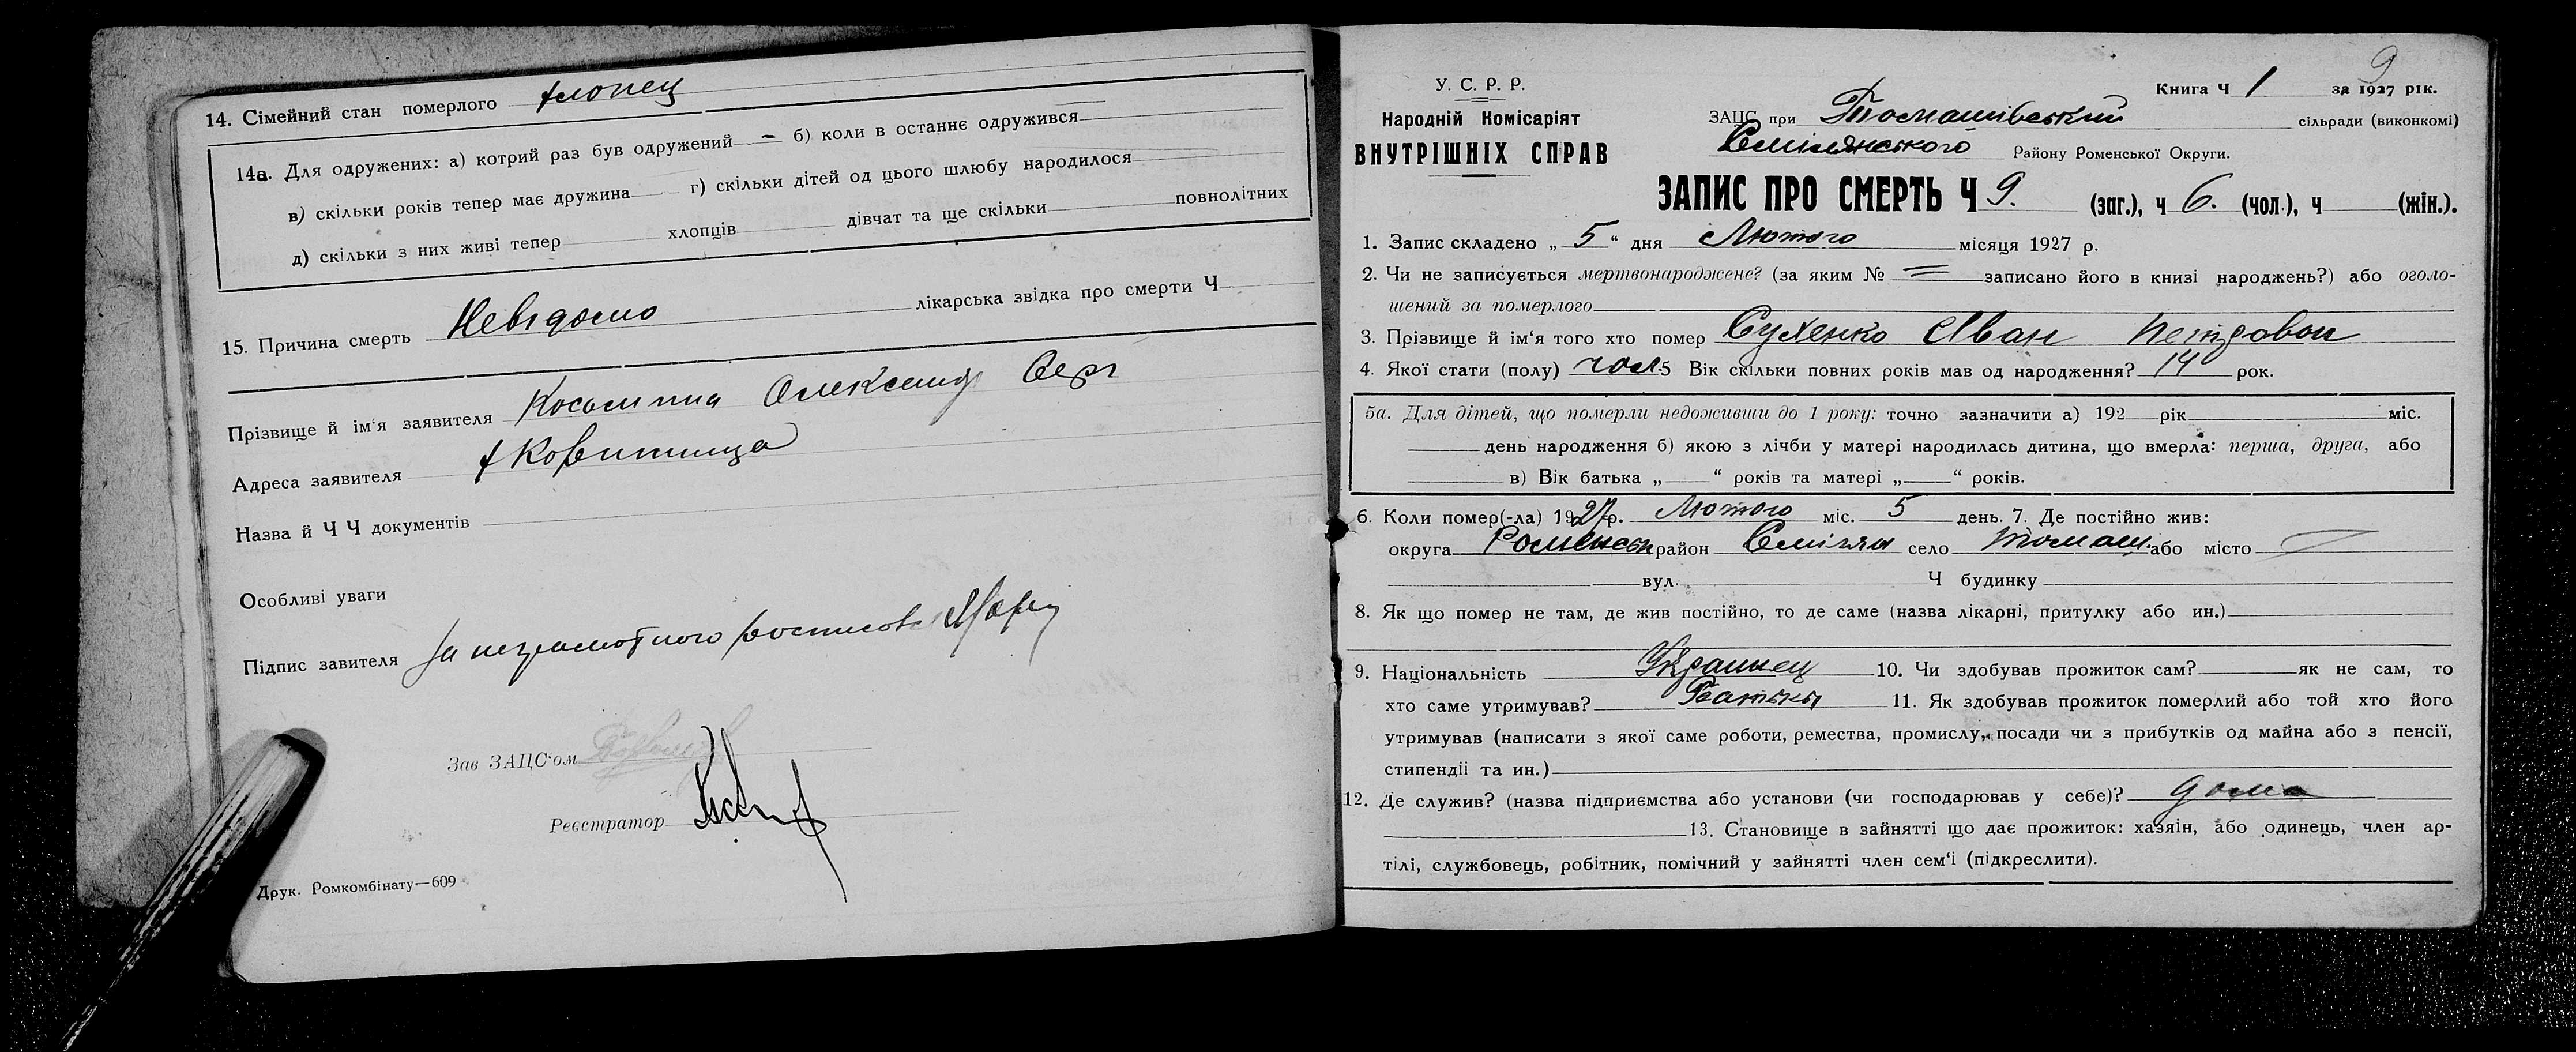 14. Сімейний стан померлого хлопец
14а. Для одружених: а) котрий раз був одружений – б) коли в останнє одружився
в) скільки років тепер має дружина г) скільки дітей од цього шлюбу народилося
д) скільки з них живі тепер хлопців дівчат та ще скільки повнолітних
15. Причина смерть Невідомо лікарська звідка про смерти Ч
Прізвище й ім'я заявителя Олександ Серг
Адреса заявителя
Назва й Ч Ч документів
Особливі уваги
Підпис завителя За неграмотного
Зав ЗАЦС'ом
Реєстратор
Друк. Ромкомбінату—609
9
У. С. Р. Р.
Народній Комісаріят
ВНУТРІШНІХ СПРАВ
Книга Ч 1 за 1927 рік.
ЗАЦС при Томашівський сільради (виконкомі)
Смілянського Району Роменської Округи.
ЗАПИС ПРО СМЕРТЬ Ч 9. (заг.), ч 6. (чол.), ч (жін.).
1. Запис складено „ 5 “ дня Лютого місяця 1927 р.
2. Чи не записується мертвонароджене? (за яким № = записано його в книзі народжень?) або оголо-
шений за померлого
3. Прізвище й ім'я того хто помер Сухенко Иван Петровои
4. Якої стати (полу) чол 5 Вік скільки повних років мав од народження? 14 рок.
5а. Для дітей, що померли недоживши до 1 року: точно зазначити а) 192 рік міс.
день народження б) якою з лічби у матері народилась дитина, що вмерла: перша, друга, або
в) Вік батька „ “ років та матері „ “ років.
6. Коли помер(-ла) 1927р. Лютого міс. 5 день. 7. Де постійно жив:
округа Роменськ район Смілян село Томаш. або місто
вул. Ч будинку
8. Як що помер не там, де жив постійно, то де саме (назва лікарні, притулку або ин.)
9. Національність Украинец 10. Чи здобував прожиток сам? як не сам, то
хто саме утримував? Батьки 11. Як здобував прожиток померлий або той хто його
утримував (написати з якої саме роботи, ремества, промислу, посади чи з прибутків од майна або з пенсії,
стипендії та ин.)
12. Де служив? (назва підприємства або установи (чи господарював у себе)? дома
13. Становище в зайнятті що дає прожиток: хазяін, або одинець, член ар-
тілі, службовець, робітник, помічний у зайнятті член сем'і (підкреслити).